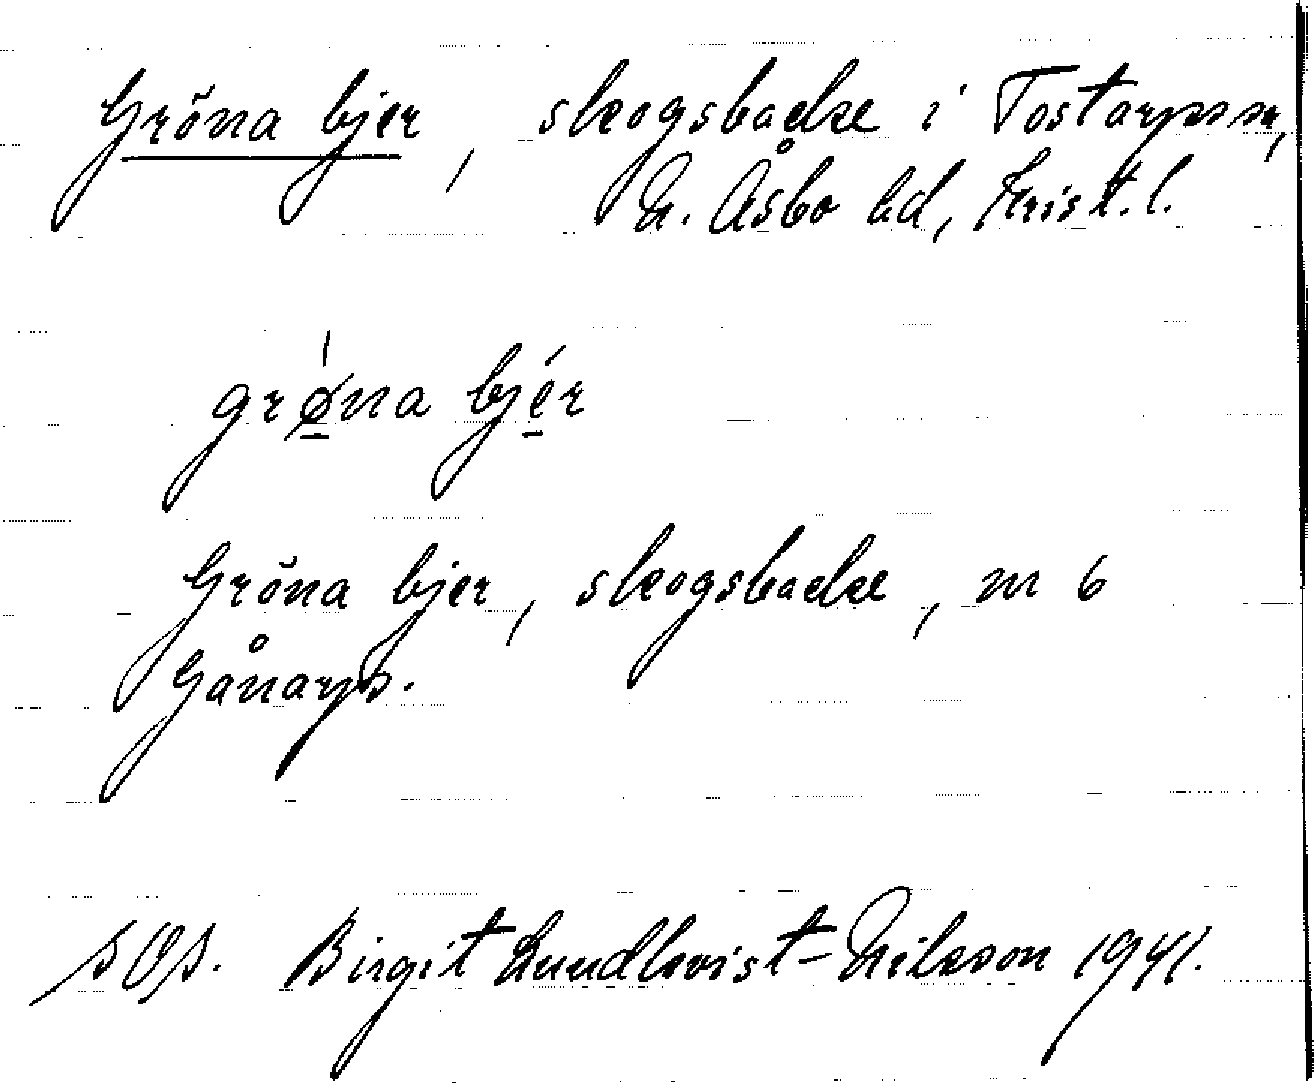 Gröna bjer, skogsbacke i Tostarps sn,
N. Åsbo hd, Krist. l.
grøna bjér
Gröna bjer, skogsbacke, nr 6
Gånarp.
SOA. Birgit Lundkvist-Nilsson 1941.